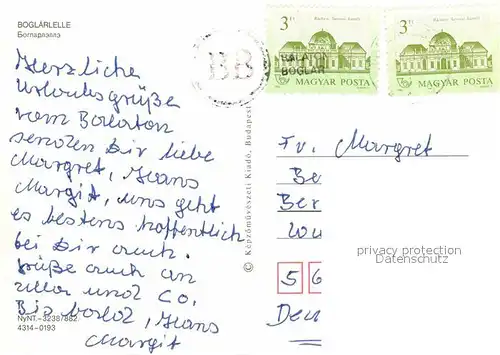 BOGLÁRLELLE
Богларлелле
Herzliche
Urlaubsgrüße
vom Balaton
senden Dir liebe
Margret, Hans
Margit, uns geht
es bestens hoffentlich
bei Dir auch.
Grüße auch an
und Co.
Bis bald, Hans
Margit
NyNT.—32387882
4314-0193
© Képzőművészeti Kiadó, Budapest
BB
BALATON
BOGLÁR
3Ft
MAGYAR POSTA
3Ft
MAGYAR POSTA
Fr. Margret
Be
Ber
Wu
privacy protection
Datenschutz
5 6
Deu